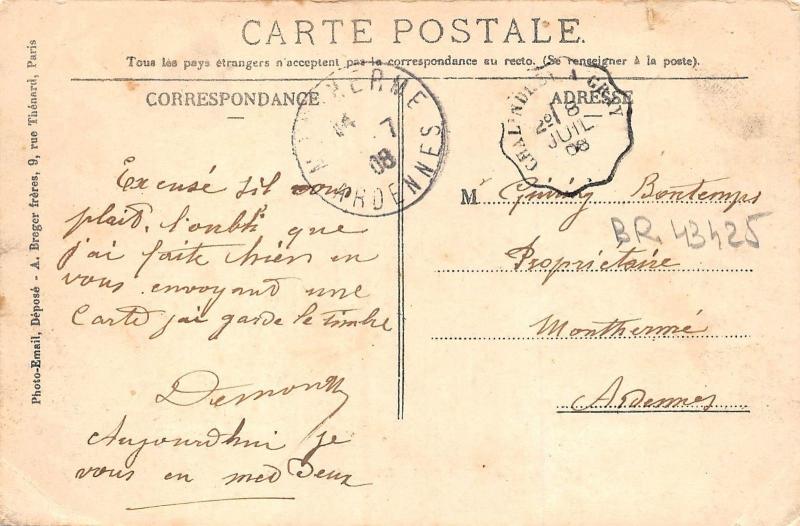 CARTE POSTALE
Tous les pays étrangers n'acceptent pas la correspondance au recto. (Se renseigner à la poste).
CORRESPONDANCE
ADRESSE
Photo-Email, Déposé - A. Breger frères, 9, rue Thénard, Paris
MONTHERMÉ
14 7
08
ARDENNES
GRAY
8
JUIL
08
Excusé sil vous
plait. l'oubli que
j'ai faite hier en
vous envoyant une
Carte j'ai garde le timbre
Aujourdhui je
vous en met deux
M Bontemps
Propriétaire
Monthermé
Ardennes
BR. 43425